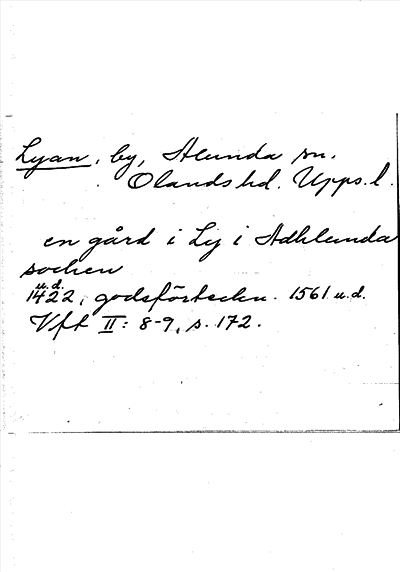 Lyan, by, Alunda sn.
Olands hd. Upps. l.
en gård i Ly i Adhlunda
socken
u.d.
1422, godsförteckn. 1561 u.d.
Vft II: 8-9, s. 172.